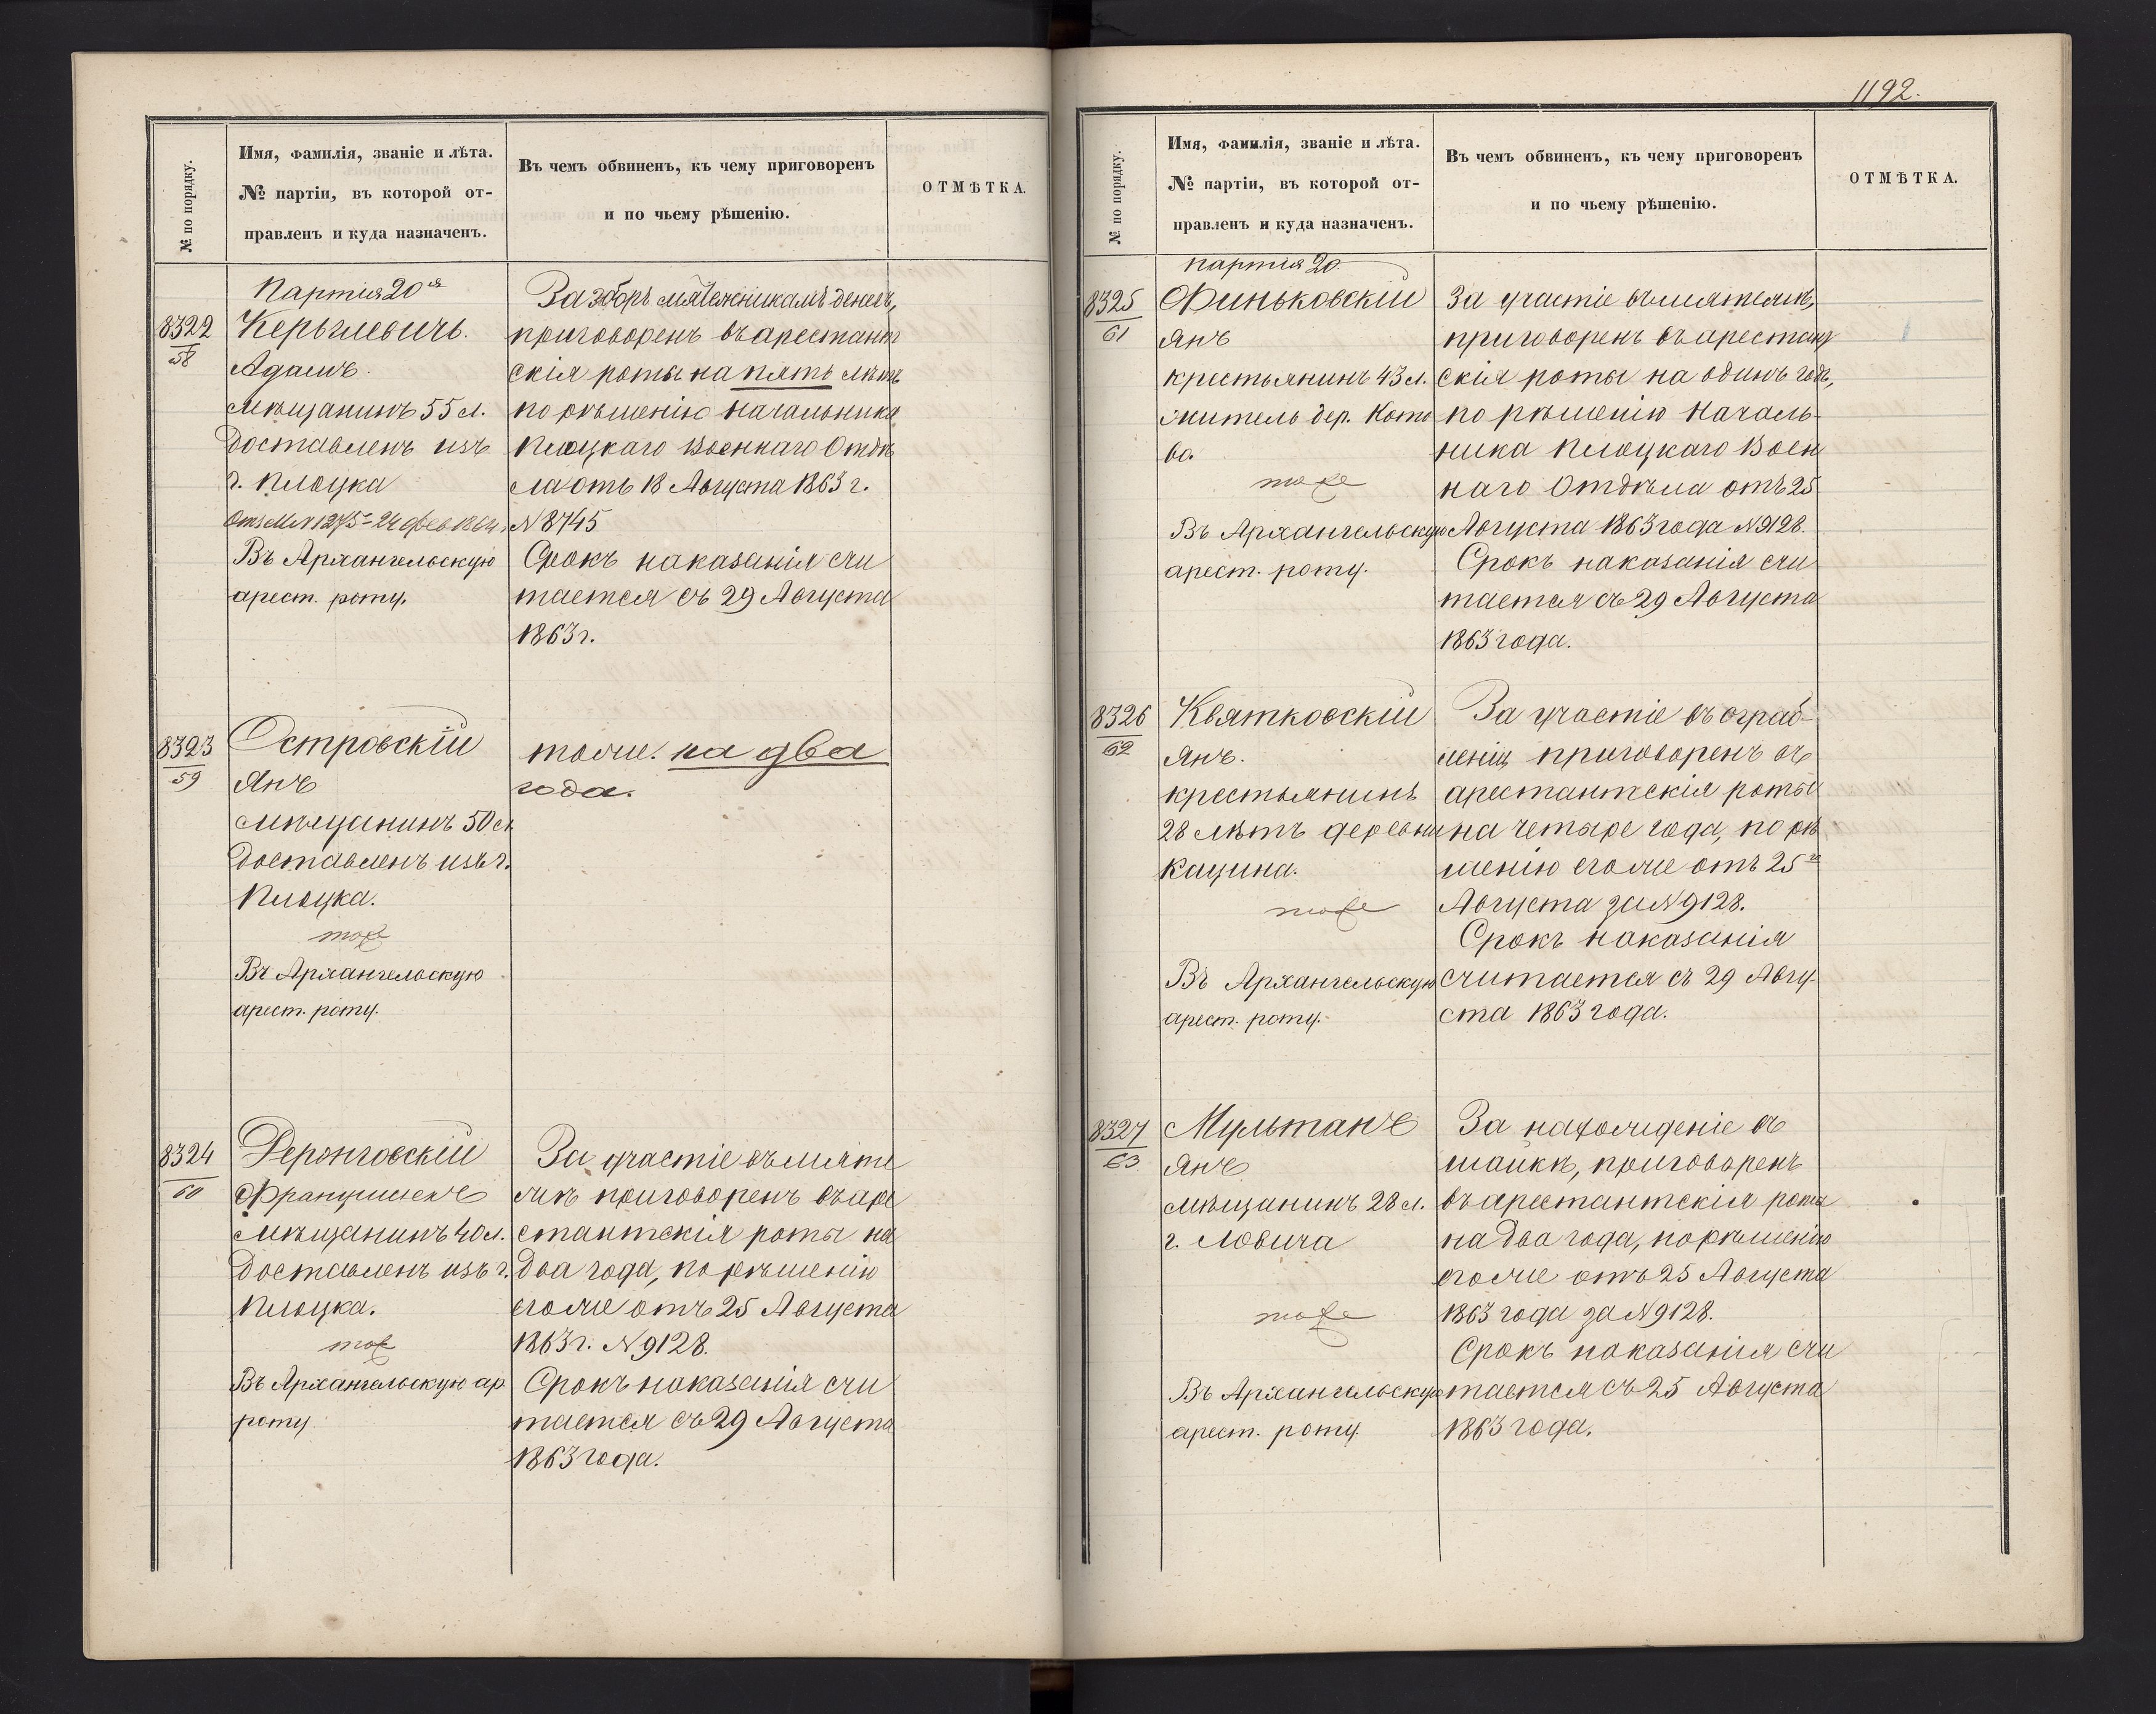 № по порядку.
Имя, фамилія, званіе и лѣта.
№ партіи, въ которой от-
правленъ и куда назначенъ.
Въ чемъ обвиненъ, къ чему приговоренъ
и по чьему рѣшенію.
ОТМѢТКА.
Партія 20я
8322
58
Керыглевичъ.
Адамъ.
мѣщанинъ 55 л.
доставленъ изъ
г. Плоцка
24 фев 1864
Въ Архангельскую
арест. роту.
За зборъ мятежникамъ денегъ,
приговоренъ въ арестант
скія роты на пять лѣтъ
по рѣшенію Начальника
Плоцкаго Военнаго Отдѣ
ла отъ 18 Августа 1863 г.
N 8745
Срокъ наказанія счи
тается съ 29 Августа
1863 г.
8323
59
Островскій
Янъ
мѣщанинъ 50 л
доставленъ изъ г.
Плоцка.
тоже
Въ Архангельскую
арест. роту.
тоже. на два
года.
8324
60
Деронговскій
Францишекъ
мѣщанинъ 40 л.
доставленъ изъ г.
Плоцка.
тоже
Въ Архангельскую ар.
роту
За участіе въ мяте
жѣ приговоренъ въ аре
стантскія роты на
два года, по рѣшенію
егоже отъ 25 Августа
1863 г. N 9128.
Срокъ наказанія счи
тается съ 29 Августа
1863 года.
1192.
№ по порядку.
Имя, фамилія, званіе и лѣта.
№ партіи, въ которой от-
правленъ и куда назначенъ.
Въ чемъ обвиненъ, къ чему приговоренъ
и по чьему рѣшенію.
ОТМѢТКА.
партія 20
8325
61
Финьковскій
Янъ
крестьянинъ 43 л.
житель дер. Кото
ва.
тоже
Въ Архангельскую
арест. роту.
За участіе въ мятежѣ,
приговоренъ въ арестант
скія роты на одинъ годъ,
по рѣшенію Началь-
ника Плоцкаго Воен
наго Отдѣла отъ 25
Августа 1863 года N 9128.
Срокъ наказанія счи
тается съ 29 Августа
1863 года.
8326
62
Квятковскій
Янъ.
крестьянинъ
28 лѣтъ деревни
Кацина.
тоже
Въ Архангельскую
арест. роту.
За участіе въ ограб-
леніи, приговоренъ въ
арестантскія роты
на четыре года, по рѣ
шенію егоже отъ 25го
Августа за N 9128.
Срокъ наказанія
считается съ 29 Авгу-
ста 1863 года.
8327
63
Мультанъ
Янъ
мѣщанинъ 28 л.
г. Ловича
тоже
Въ Архангельскую
арест. роту.
За нахожденіе въ
шайкѣ, приговоренъ
въ арестантскія роты
на два года, по рѣшенію
егоже отъ 25 Августа
1863 года за N 9128.
Срокъ наказанія счи
тается съ 25 Августа
1863 года.